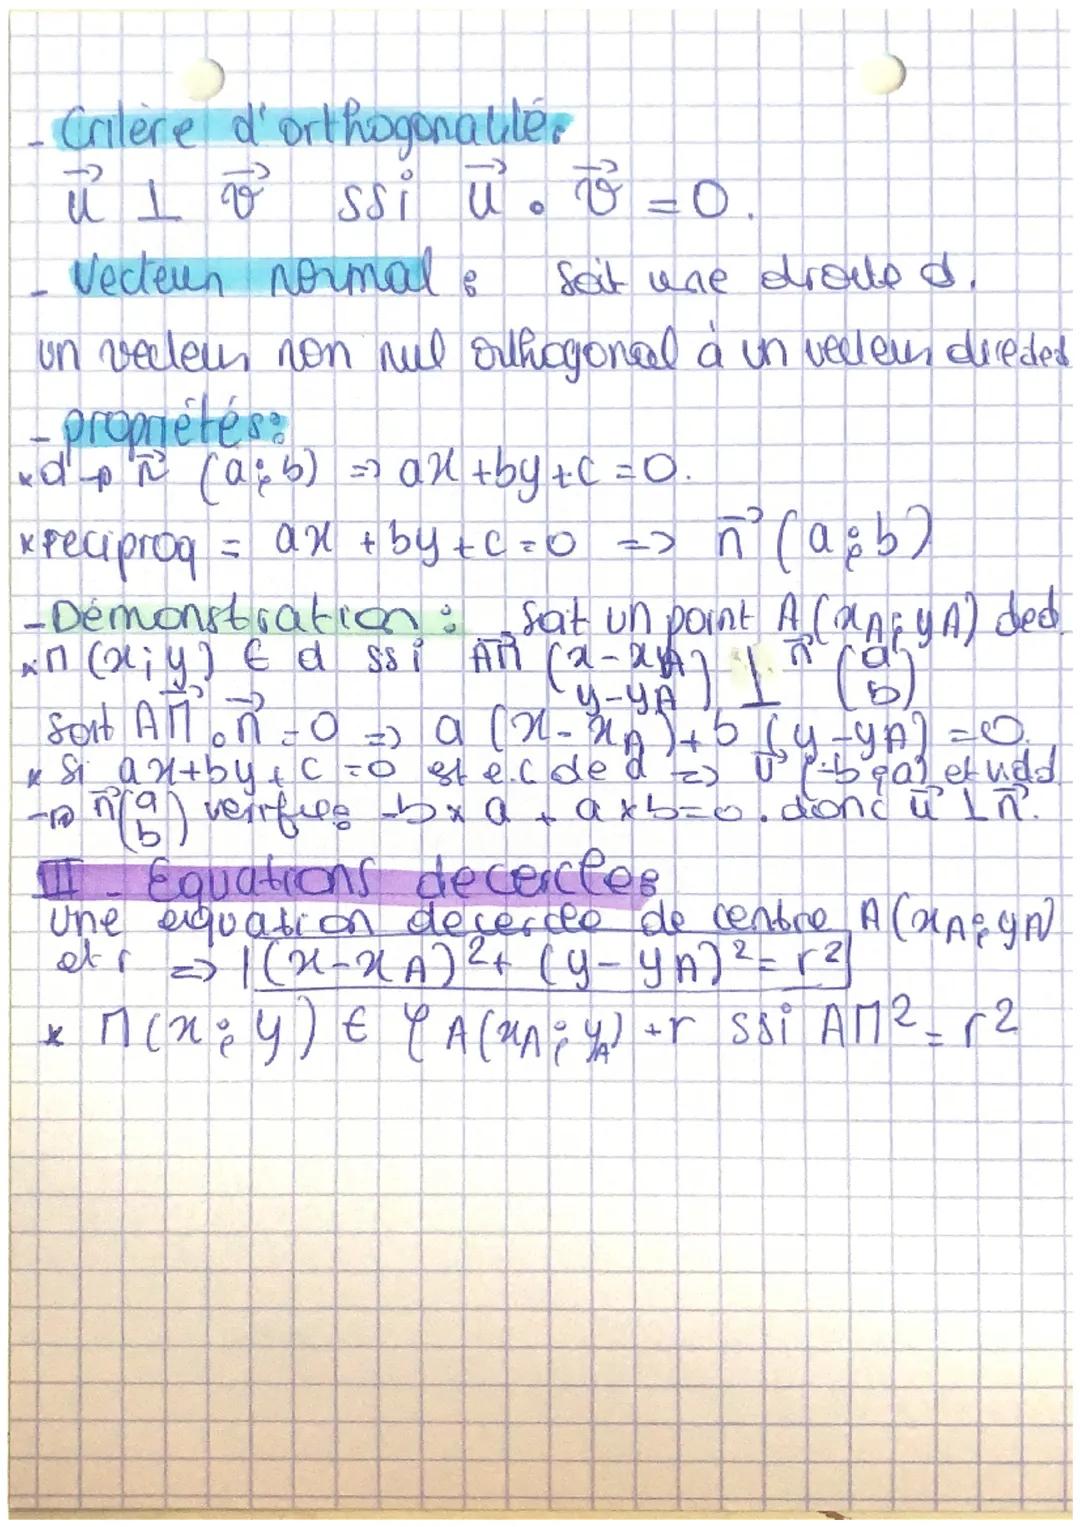 - Critère d'orthogonalité:
u⃗ ⊥ v⃗ ssi u⃗ . v⃗ = 0.
- Vecteur normal : Soit une droite d.
un vecteur non nul orthogonal à un vecteur dir de d
- propriétés:
x d → n⃗ (a;b) => ax+by+c=0.
x reciproq = ax+by+c=0 => n⃗ (a;b)
- Démonstration : Soit un point A(xA;yA) de d
x M(x;y) ∈ d ssi AM⃗ (x-xA y-yA) ⊥ n⃗ (a b)
soit AM⃗ . n⃗ = 0 => a(x-xA)+b(y-yA)=0.
x Si ax+by+c=0 est e.c de d => u⃗ (-b;a) et v.d.d
→ n⃗ (a b) verifie: -b×a + a×b=0. donc u⃗ ⊥ n⃗.
II - Equations de cercles
une equation de cercle de centre A(xA;yA)
et r => (x-xA)²+(y-yA)²=r²
x M(x;y) ∈ 𝒞 A(xA;yA) + r ssi AM²=r²